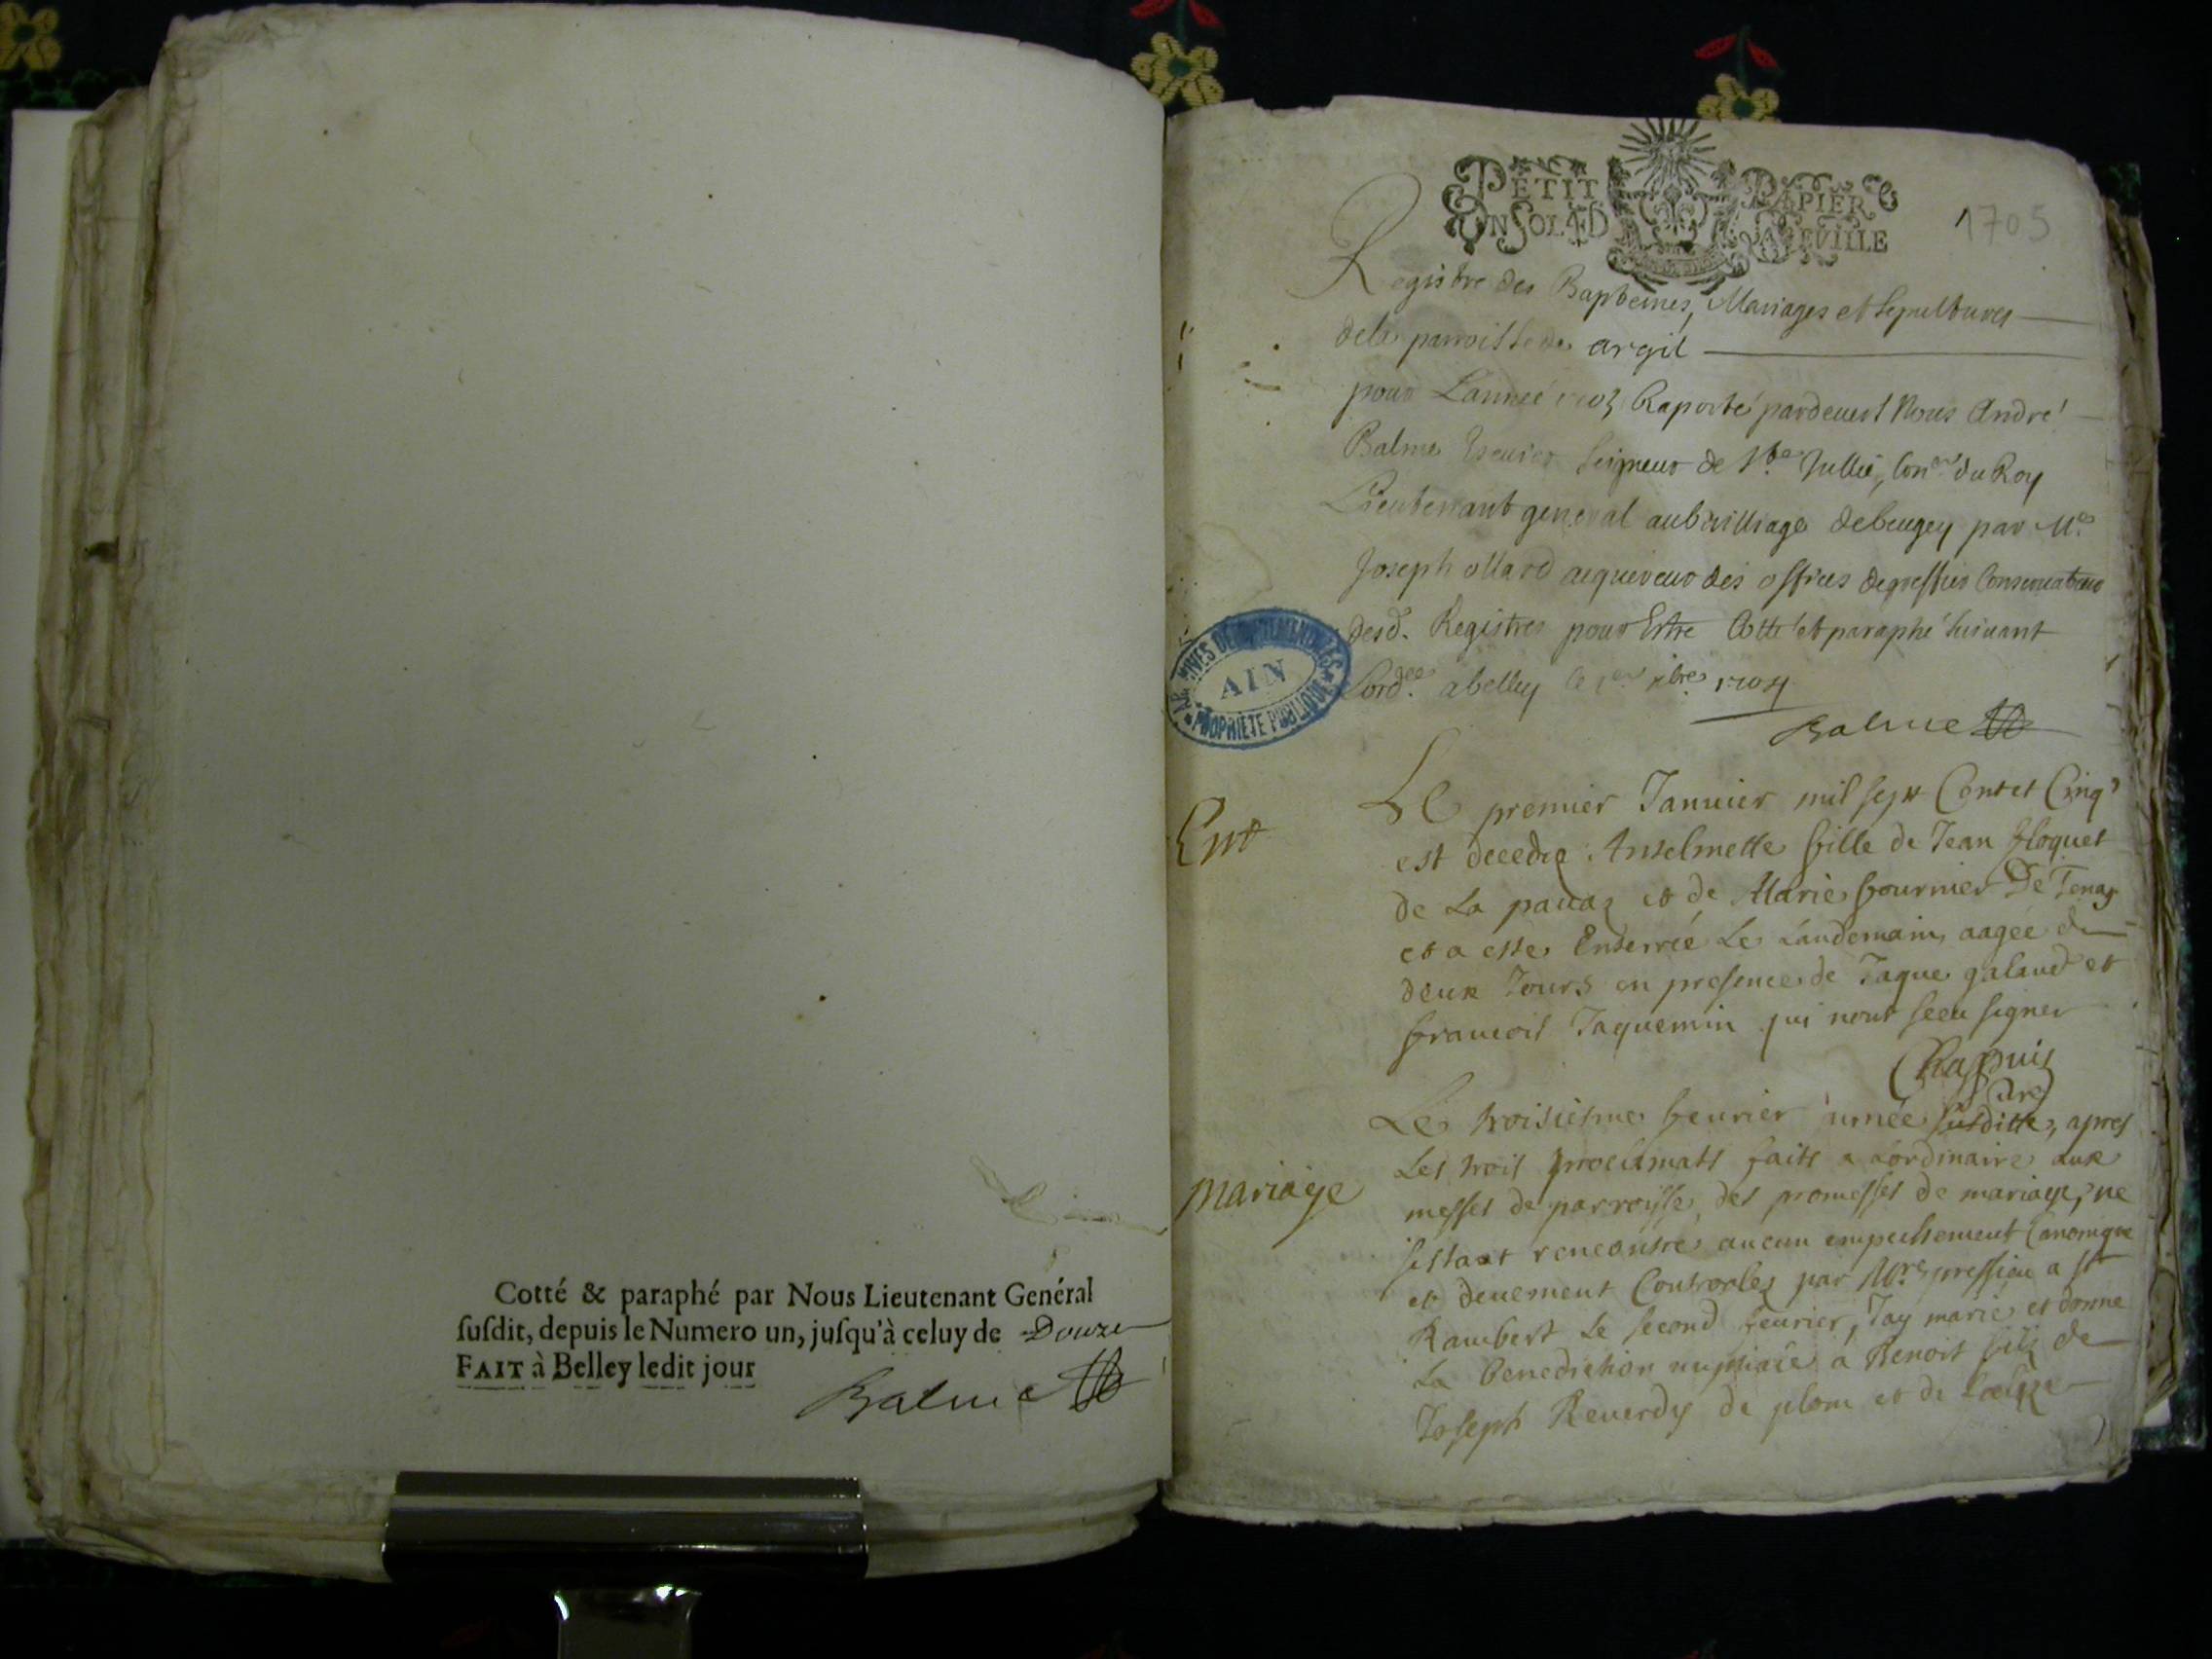 Cotté & paraphé par Nous Lieutenant Genéral
susdit, depuis le Numero un, jusqu'à celuy de Douze
FAIT à Belley ledit jour
Balme
PETIT PAPIER
UN SOL LAFEUILLE
1705
Registre des Baptemes, Mariages et sepultures
dela parroisse de argil
pour Lannée Raporté pardevert Nous André
Balme Escuier seigneur de Jullie, Con.er du Roy
Lieutenant general au bailliage de bugey par M.e
Joseph ollard acquereur des offices degreffier Conservateur
desd. Registres pour Estre Cotté et paraphé suivant
Lord.ce abelley le 1.er xbre 1704
Balme
ARCHIVES DEPARTEMENTALES
AIN
PROPRIETE PUBLIQUE
Ent
Le premier Januier mil sept Cent et Cinq
est decedee Anselmette fille de Jean floquet
de La pauaz et de Marie fournier De Tenay
et a este Enterrée Le Landemain, aagée de
deux Jours en presence de Jaque galand et
francois Jaquemin qui nont sceu signer
Chapuis
Curé
mariage
Le troisieme feurier année susditte, apres
Les trois proclamats faits a Lordinaire aux
messes de parroisse, des promesses de mariage, ne
sestant rencontré aucun empechement Canonique
et deuement Controolez par Mre pressieu a st
Rambert Le second feurier, Jay marié et donné
La benediction nuptiale a Benoit fils de
Joseph Reuerdy de plom et de